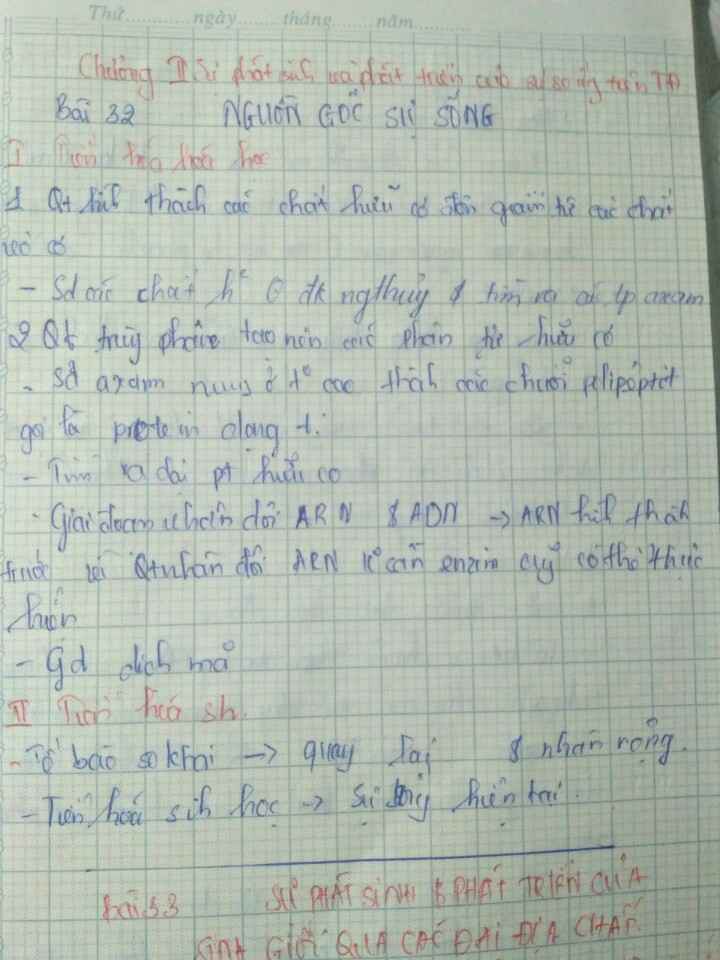 Thứ ngày tháng năm
Chương II Sự phát sinh và phát triển của sự sống trên TĐ
Bài 32 NGUỒN GỐC SỰ SỐNG
I Tiến hóa hoá học
1 Qt hình thành các chất hữu cơ đơn giản từ các chất
vô cơ
- Sd các chất h c ở đk ng thuỷ & tìm ra
2 Qt trùng phân tạo nên các phân tử hữu cơ
- Sd axam nung ở t° cao thành các chuỗi polipeptit
gọi là protein dạng t.
- Tìm ra đại pt hữu cơ
- Giai đoạn nhân đôi ARN & ADN → ARN hình thành
trước vì Qt nhân đôi ARN k° cần enzim cũg có thể thực
hiện
- Gd dịch mã
II Tiến hoá sh
- Tế bào sơ khai → quay lại & nhân rộng.
- Tiến hoá sinh học → Sự sống hiện tại.
Bài 33 SỰ PHÁT SINH & PHÁT TRIỂN CỦA
GIỚI QUA CÁC ĐẠI ĐỊA CHẤT